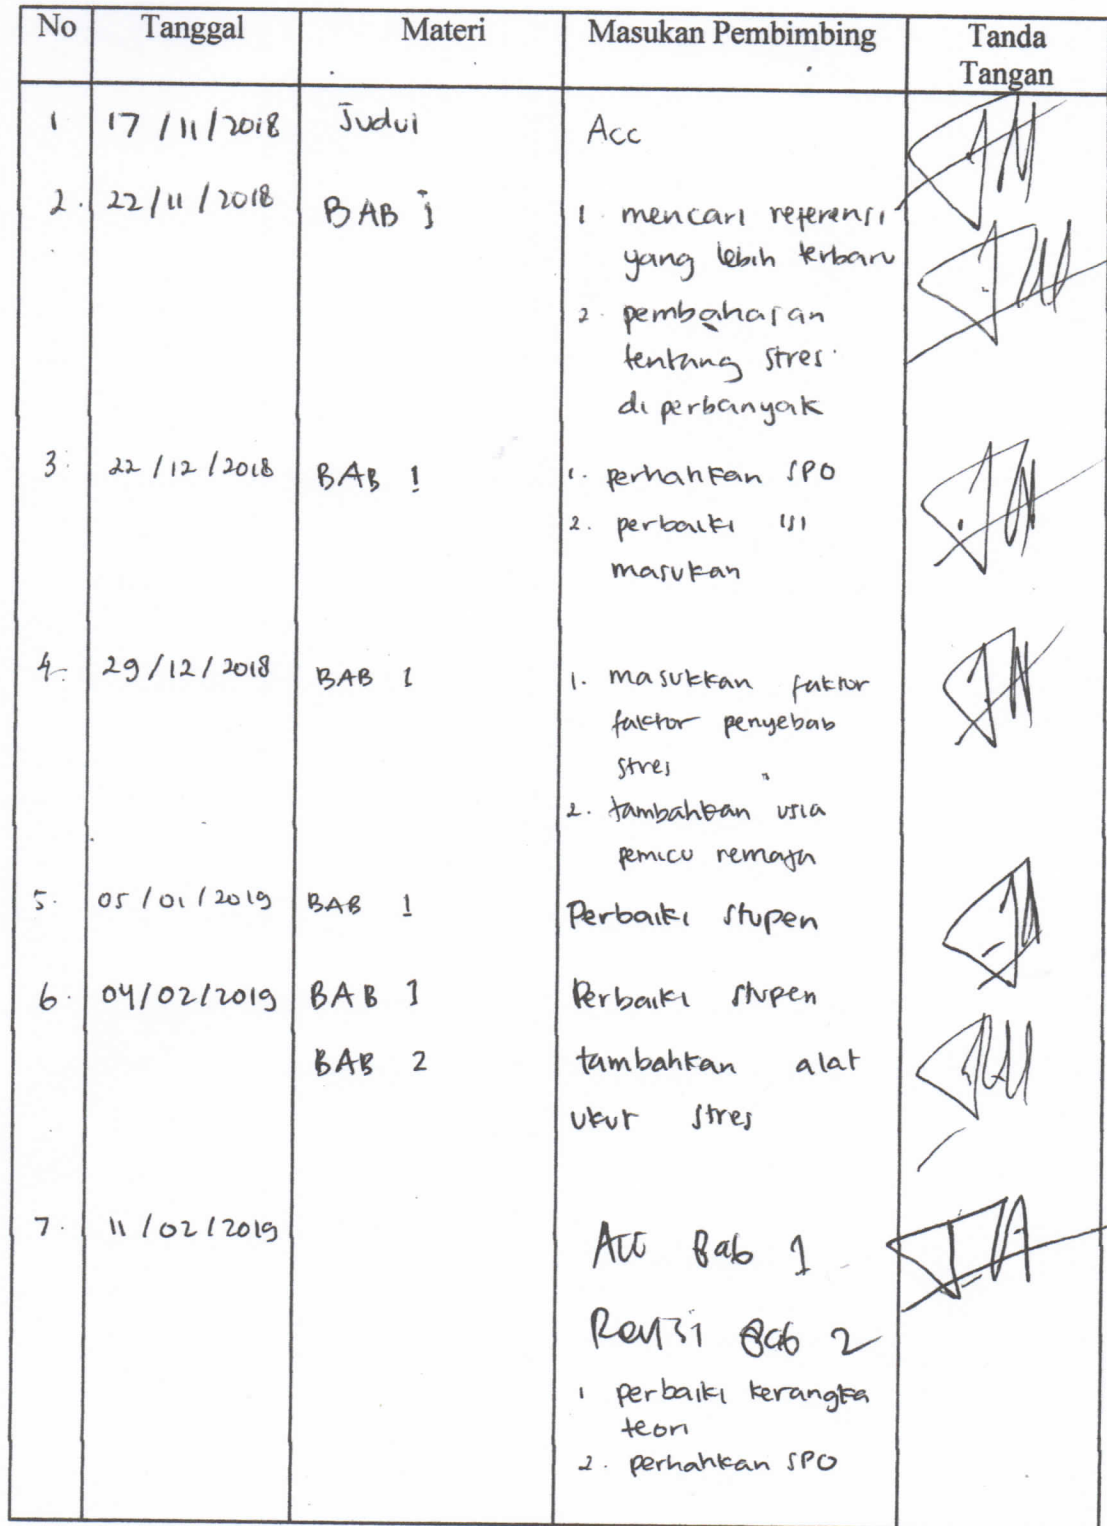 No Tanggal Materi Masukan Pembimbing Tanda
Tangan
1 17/11/2018 Judul Acc
2. 22/11/2018 BAB 1 1. mencari referensi
yang lebih terbaru
2. pembahasan
tentang stres
diperbanyak
3. 22/12/2018 BAB 1 1. perhatikan SPO
2. perbaiki isi
masukan
4. 29/12/2018 BAB 1 1. masukkan faktor
faktor penyebab
stres
2. tambahkan usia
pemicu remaja
5. 05/01/2019 BAB 1 Perbaiki stupen
6. 04/02/2019 BAB 1 Perbaiki stupen
BAB 2 tambahkan alat
ukur stres
7. 11/02/2019 Acc Bab 1
Revisi Bab 2
1 perbaiki kerangka
teori
2. perhatikan SPO